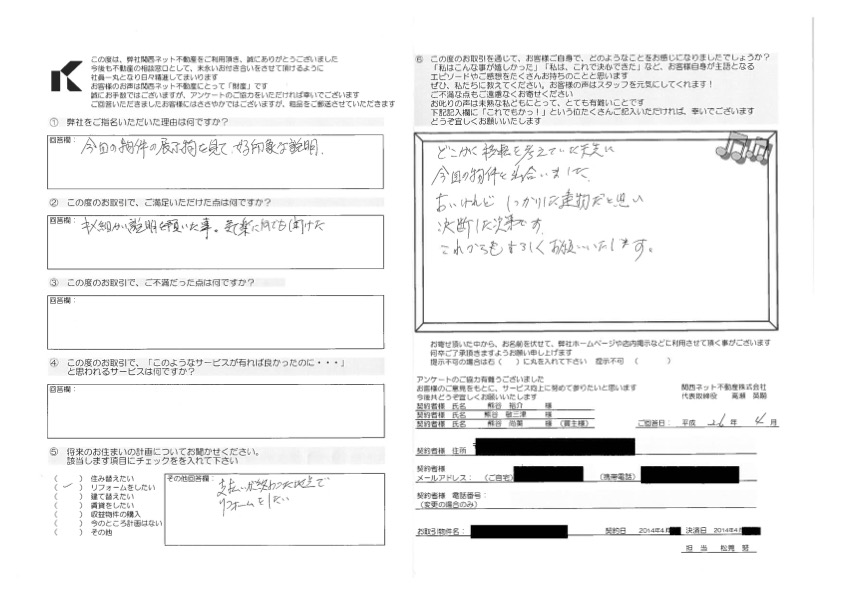 この度は、弊社関西ネット不動産をご利用頂き、誠にありがとうございました
今後も不動産の相談窓口として、末永いお付き合いをさせて頂けるように
社員一丸となり日々精進してまいります
お客様のお声は関西ネット不動産にとって「財産」です
誠にお手数ではございますが、アンケートのご協力をいただければ幸いでございます
ご回答いただきましたお客様にはささやかではございますが、粗品をご郵送させていただきます
① 弊社をご指名いただいた理由は何ですか?
回答欄:
今回の物件の展示場を見て、好印象な説明。
② この度のお取引で、ご満足いただけた点は何ですか?
回答欄:
キメ細かい説明を頂いた事。気楽に何でも聞けた
③ この度のお取引で、ご不満だった点は何ですか?
回答欄:
④ この度のお取引で、「このようなサービスが有れば良かったのに・・・」
と思われるサービスは何ですか?
回答欄:
⑤ 将来のお住まいの計画についてお聞かせください。
該当します項目にチェックをを入れて下さい
( ) 住み替えたい
(✓) リフォームをしたい
( ) 建て替えたい
( ) 賃貸をしたい
( ) 収益物件の購入
( ) 今のところ計画はない
( ) その他
その他回答欄:
支払いが終わった時点で
リフォームをしたい
⑥ この度のお取引を通じて、お客様ご自身で、どのようなことをお感じになりましたでしょうか?
「私はこんな事が嬉しかった」「私は、これで決心できた」など、お客様自身が主語となる
エピソードやご感想をたくさんお持ちのことと思います
ぜひ、私たちに教えてください。お客様の声はスタッフを元気にしてくれます!
ご不満な点もご遠慮なくお寄せください
お叱りの声は未熟な私どもにとって、とても有難いことです
下記記入欄に「これでもかっ!」という位たくさんご記入いただければ、幸いでございます
どうぞ宜しくお願いいたします
どこかに移転を考えていた矢先に
今回の物件と出合いました。
古いけれど しっかりした建物だと思い
決断した次第です。
これからもよろしくお願いいたします。
お寄せ頂いた中から、お名前を伏せて、弊社ホームページや店内掲示などに利用させて頂く事がございます
何卒ご了承頂きますようお願い申し上げます
提示不可の場合は右( )に丸を入れて下さい 提示不可 ( )
アンケートのご協力有難うございました
お客様のご意見をもとに、サービス向上に努めて参りたいと思います
今後共どうぞ宜しくお願いいたします
関西ネット不動産株式会社
代表取締役 高瀬 英剛
契約者様 氏名 熊谷 裕介 様
契約者様 氏名 熊谷 敬三津 様
契約者様 氏名 熊谷 尚美 様 (買主様)
ご回答日: 平成 26 年 4 月
契約者様 住所
契約者様
メールアドレス: (ご自宅) (携帯電話)
契約者様 電話番号:
(変更の場合のみ)
お取引物件名: 契約日 2014年4月 決済日 2014年4月
担 当 松晃 努